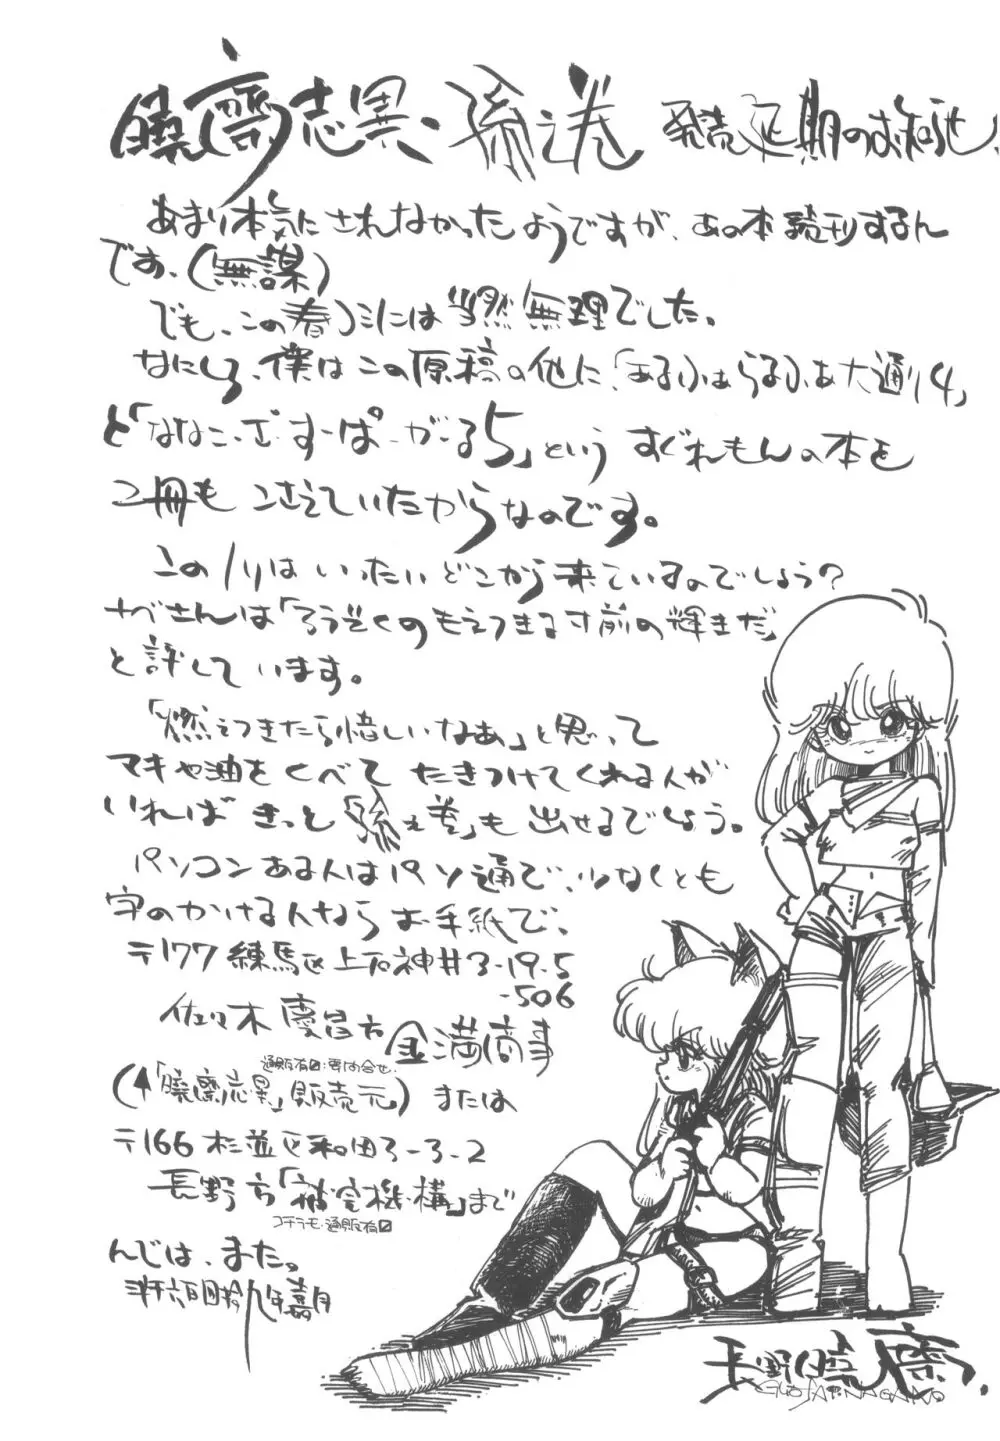 曉齋志異、孫之巻 発売延期のお知らせ!
あまり本気にされなかったようですが、あの本続刊するん
です、(無謀)
でも、この春コミには当然無理でした。
なにしろ、僕はこの原稿の他に、「あるふぁらるふぁ大通り4」
と「ななこ・ざ・すーぱーがーる5」という すぐれもんの本を
2冊も こさえていたからなのです。
このノリは いったい どこから 来ているのでしょう?
ナベさんは「ろうそくのもえつきる寸前の輝きだ」
と評しています。
「燃えつきたら惜しいなあ」と思って
マキや油をくべて たきつけてくれる人が
いれば きっと「孫之巻」も 出せるでしょう。
パソコンある人はパソ通で、少なくとも
字のかける人なら お手紙で、
〒177 練馬区上石神井3-19-5
-506
佐々木 慶昌方 金満商事
通販有〼:要問合せ.
(↑「曉齋志異」販売元) または
〒166 杉並区和田3-3-2
長野方 「機構」まで
コチラモ・通販有〼
んでは、また。
長野曉齋.